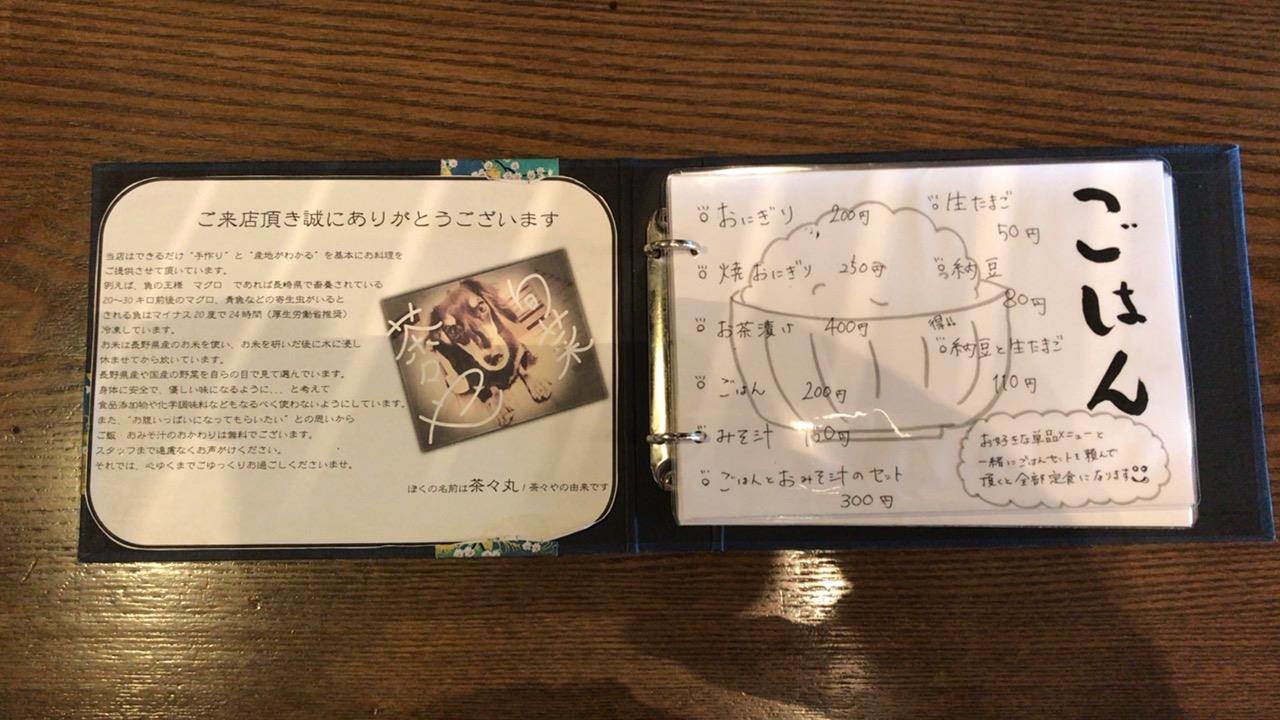 ご来店頂き誠にありがとうございます
当店はできるだけ“手作り”と“産地がわかる”を基本にお料理を
ご提供させて頂いています。
例えば、魚の王様 マグロ であれば長崎県で畜養されている
20～30キロ前後のマグロ、青魚などの寄生虫がいると
される魚はマイナス20度で24時間（厚生労働省推奨）
冷凍しています。
お米は長野県産のお米を使い、お米を研いだ後に水に浸し
休ませてから炊いています。
長野県産や国産の野菜を自らの目で見て選んでいます。
身体に安全で、優しい味になるように...と考えて
食品添加物や化学調味料などもなるべく使わないようにしています。
また、“お腹いっぱいになってもらいたい”との思いから
ご飯・おみそ汁のおかわりは無料でございます。
スタッフまで遠慮なくお声がけください。
それでは、心ゆくまでごゆっくりお過ごしくださいませ。
ぼくの名前は茶々丸！茶々やの由来です
ごはん
おにぎり 200円
焼おにぎり 250円
お茶漬け 400円
ごはん 200円
みそ汁 150円
ごはんとおみそ汁のセット
300円
生たまご
50円
納豆
80円
得品
納豆と生たまご
110円
お好きな単品メニューと
一緒にごはんセットを頼んで
頂くと全部定食になります